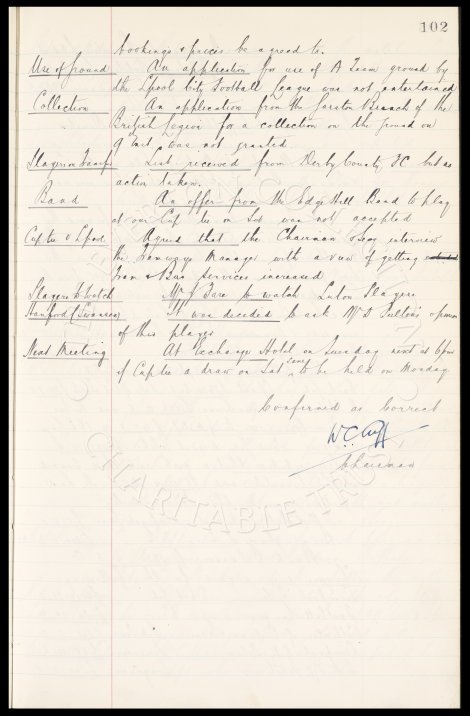 102
bookings & prices be agreed to.
Use of ground An application for use of A Team ground by
the Lpool City Football League was not entertained
Collection An application from the Garston Branch of the
British Legion for a collection on the ground on
9 inst was not granted
Players on Transfr List received from Derby County FC but no
action taken.
Band An offer from the Edge Hill Band to play
at our Cup tie on Sat was not accepted
Cup tie v Lpool Agreed that the Chairman & Secy interview
the Tramways Manager with a view of getting
Tram & Bus Services increased
Players to Watch Mr J Fare to watch Luton Players
Hanford (Swansea) It was decided to ask Mr opinion
of this player
Next Meeting At Exchange Hotel on Tuesday next at 6 pm
if Cup tie a draw on Sat same to be held on Monday
Confirmed as Correct
W.C. Cuff
Chairman
CHARITABLE TRUST